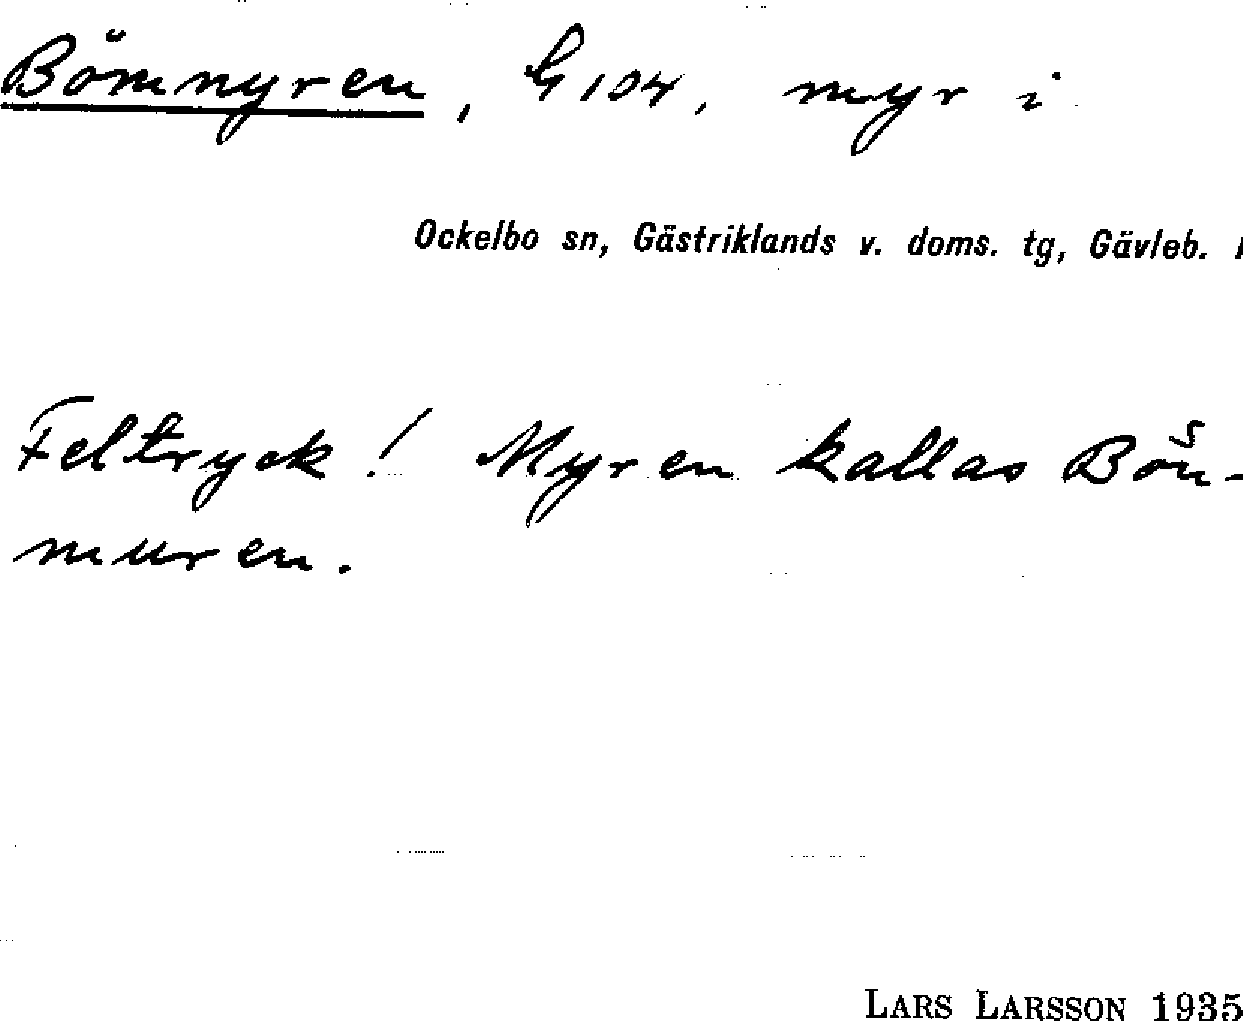 Bömnyren, G104, myr i
Ockelbo sn, Gästriklands v. doms. tg, Gävleb.
Feltryck! Myren kallas Bön-
muren.
LARS LARSSON 1935